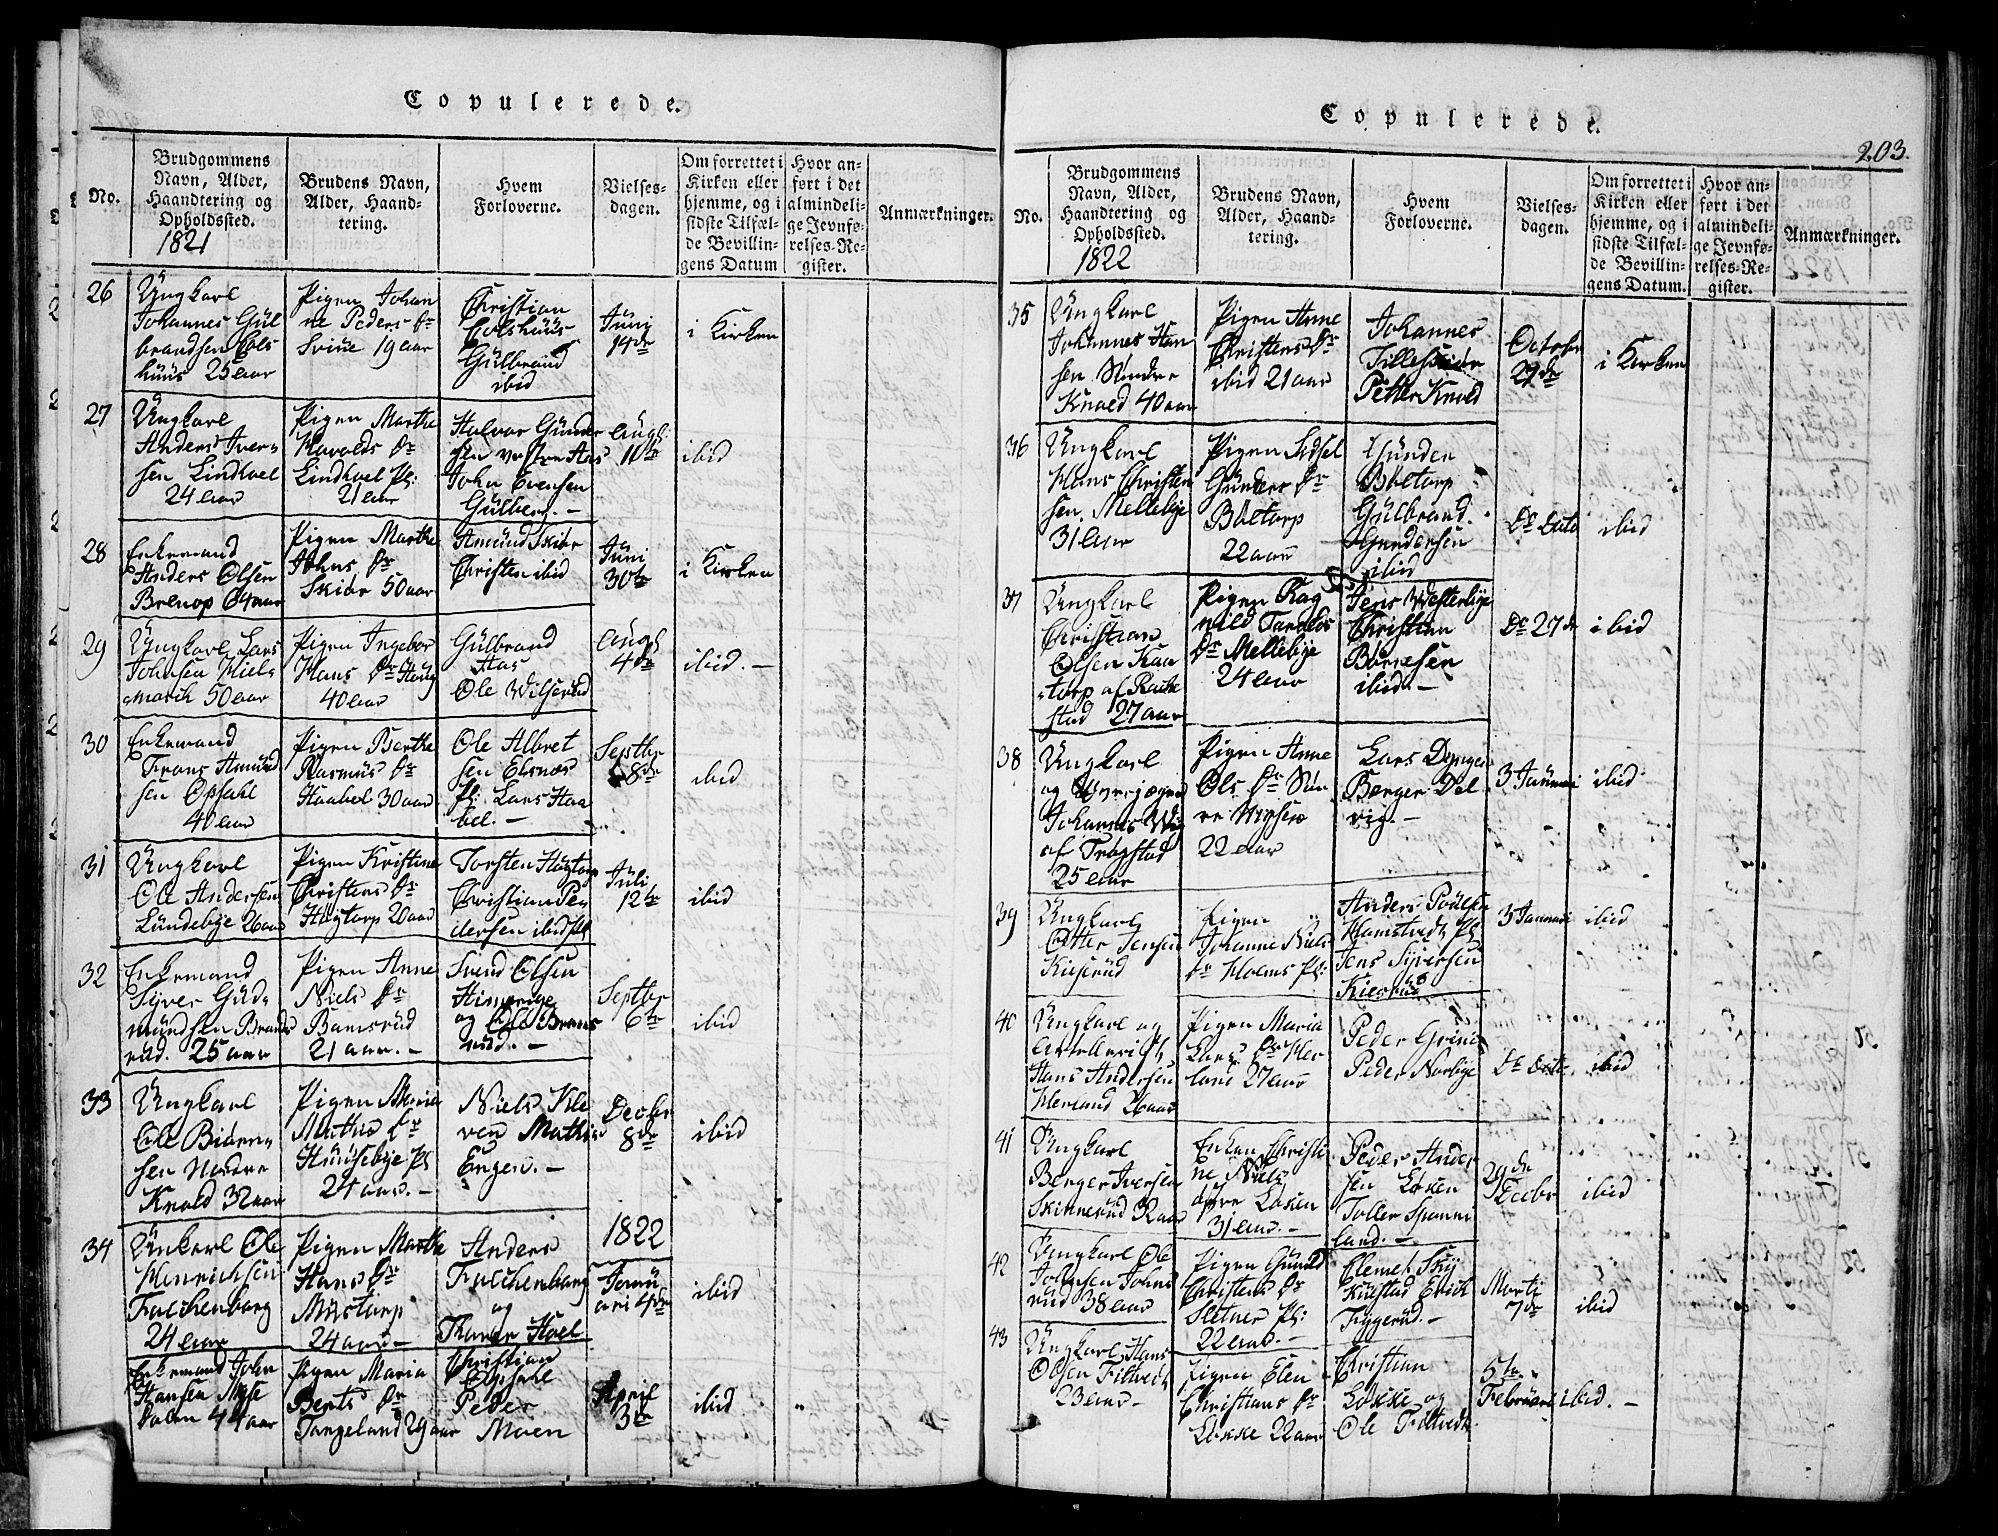 Copulerede.
No.
Brudgommens Navn, Alder, Haandtering og Opholdssted.
1821
Brudens Navn, Alder, Haandtering.
Hvem Forloverne.
Vielsesdagen.
Om forrettet i Kirken eller hjemme, og i sidste Tilfælde Bevillingens Datum
Hvor anført i det almindelige Jevnførelses-Register.
Anmærkninger.
26
Ungkarl
Johannes Gül
brandsen
25 aar
Pigen Johan
ne Peders Dr
19 aar
Christian
Gülbrand
ibid
Juni
14de
i Kirken
27
Ungkarl
Anders Iver-
sen Lindhoel
24 aar
Pigen Marthe
Haralds Dr
Lindhoel Pl:
21 aar
Halvor Günder
sen vestre Aas
John Evensen
Gülberg. -
Augs
11te
ibid
28
Enkemand
Anders Olsen
64 aar
Pigen Marthe
Johns Dr
Skiør 50 aar
Amünd Skiør
Christen ibid
Juni
30te
i Kirken
29
Ungkarl Lars
Johnsen Miels
march 50 aar
Pigen Ingebor
Hans Dr Haug
40 aar
Gülbrand
Aas
Ole
Augs
4de
ibid. -
30
Enkemand
Frans Amünd
sen Opsahl
40 aar
Pigen Berthe
Rasmüs Dr
Haabel 30 aar
Ole Albret
sen Elsnæs
Pl: Lars Haa
bel. -
Septbr
8de
ibid
31
Ungkarl
Ole Andersen
Lündebye 26 aar
Pigen Kristine
Christens Dr
Høytorp 20 aar
Torsten Høytorp
Christian Pe
dersen ibid Pl
Juli
12te
ibid
32
Enkemand
Syver Güd-
mündsen Brands
rüd. 25 aar
Pigen Anne
Niels Dr
Bamsrüd
21 aar. -
Svend Olsen
og Ole Brans
rüd. -
Septbr
6te
ibid
33
Ungkarl
Ole Biørn-
sen Nordre
Knold 32 aar
Pigen Maria
Mathis Dr
Haüsebye Pl
24 aar. -
Niels Kle
ven Mathis
Engen. -
Decbr
8de
ibid
1822
34
Unkarl Ole
Henrichsen
Falchenborg
24 aar
Pigen Marthe
Hans Dr
Mustorp
24 aar -
Anders
Falchenborg
og
Hoel
Janü
ari 4de
ibid
Enkemand John
Hansen
44 aar
Pigen Maria
Berts Dr
Tangeland 29 aar
Christian
Peder
Moen
April
3de
ibid
Copulerede.
203.
No.
Brudgommens Navn, Alder, Haandtering og Opholdssted.
1822
Brudens Navn, Alder, Haandtering.
Hvem Forloverne.
Vielsesdagen.
Om forrettet i Kirken eller hjemme, og i sidste Tilfælde Bevillingens Datum.
Hvor anført i det almindelige Jevnførelses-Register.
Anmærkninger.
35
Ungkarl
Johannes Han
sen Nordre
Knold 40 aar
Pigen Anne
Christens Dr
ibid 21 aar
Johannes
Petter Knold
October
29de
i Kirken
36
Ungkarl
Hans Christen
sen Mellebye
31 aar
Pigen Sidsel
Günders Dr
Bøetorp
22 aar
Günder
Bøetorp
Gülbrand
Gundersen
ibid
Do Dato
ibid
37
Ungkarl
Christian
Olsen Kaa
torp af Rak
stad 27 aar
Pigen Rag
nild Taralds
Dr Mellebye
24 aar
Jens Westerbye
Christian
Børresen
ibid. -
Do 27de
ibid
38
Ungkarl
og
Johannes
af Trøgstad
25 aar
Pigen Anne
Ols Dr
22 aar
Lars
Berger Del
vig. -
3 Januari
ibid
39
Ungkarl
Otter Jensen
Kieserüd
Pigen
Johanne Niels
Dr Moens Pl:
Anders
Jens Syversen
Kieserüd
3 Januari
ibid
40
Ungkarl og
Hans Andersen
Herland 26 aar
Pigen Maria
Lars Dr Her
land 27 aar
Peder
Peder Norbye
Do Dato
ibid
41
Ungkarl
Berger Iversen
Skinnerüd 32 aar
Enken Christi
ne Niels
Løken
31 aar. -
Peder Ander
sen Løken
Toller
land. -
29de
Decbr
ibid
42
Ungkarl Ole
Johnsen Johns
rüd 38 aar
Pigen Günild
Christens Dr
Sletner Pl:
22 aar. -
Clemet
Erich
Tyggerüd. -
Marti
7de
ibid
43
Ungkarl Hans
Olsen
23 aar -
Pigen Elen
Christians Dr
Løkke 22 aar
Christian
Løkke og
Ole
5te
Februari
ibid. -